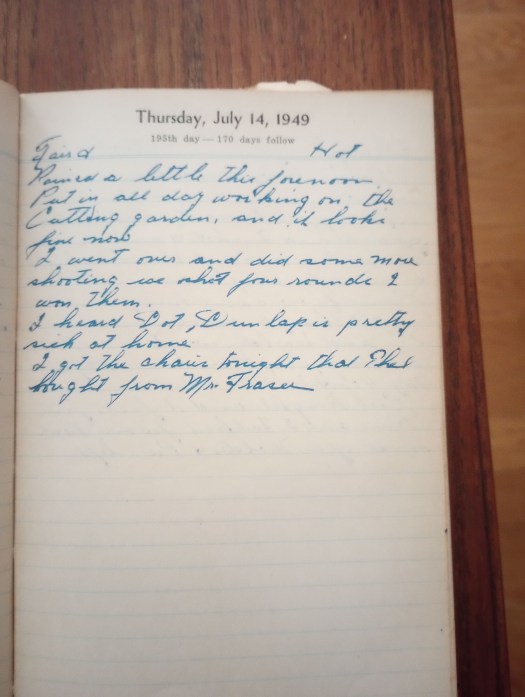 Thursday, July 14, 1949
195th day — 170 days follow
Fair & Hot
Rained a little this forenoon
Put in all day working on the
Cutting garden, and it looks
fine now
I went over and did some more
shooting we shot four rounds I
won them.
I heard Dot, Dunlap is pretty
sick at home
I got the chairs tonight that Ethel
bought from Mr. Fraser